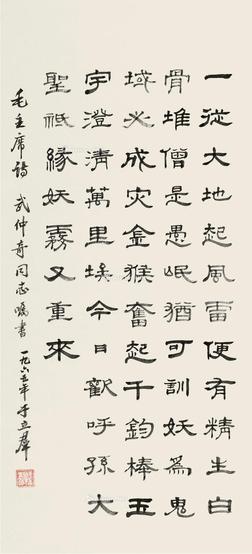 一從大地起風雷便有精生白
骨堆僧是愚氓猶可訓妖為鬼
域必成灾金猴奮起千鈞棒玉
宇澄清萬里埃今日歡呼孫大
聖祇緣妖霧又重來
毛主席詩 武仲奇同志囑書 一九六五年 于立羣